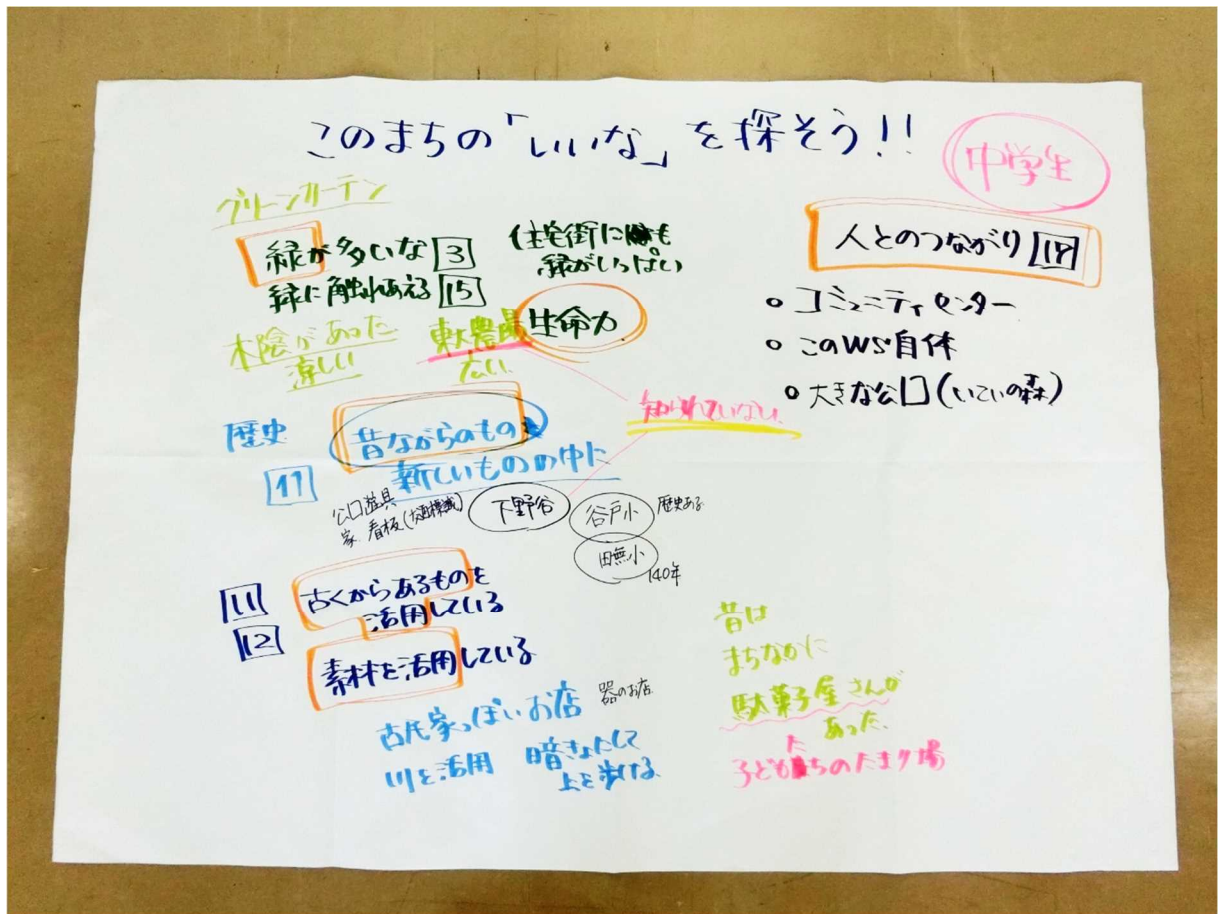 このまちの「いいな」を探そう!!
中学生
グリーンカーテン
緑が多いな 3
緑に触れあえる 15
住宅街にも
緑がいっぱい
木陰があった
涼しい
東大農場
広い
生命力
知られていない
人とのつながり
○コミュニティセンター
○このWS自体
○大きな公口(いこいの森)
歴史
昔ながらのもの
新しいものの中に
公口遊具
家 看板
下野谷
谷戸小
歴史ある
田無小
140年
11 古くからあるものを
活用している
12 素材を活用している
古民家っぽいお店
器のお店
川を活用
暗きょにして
上を歩ける
昔は
まちなかに
駄菓子屋さんが
あった
子どもたちのたまり場